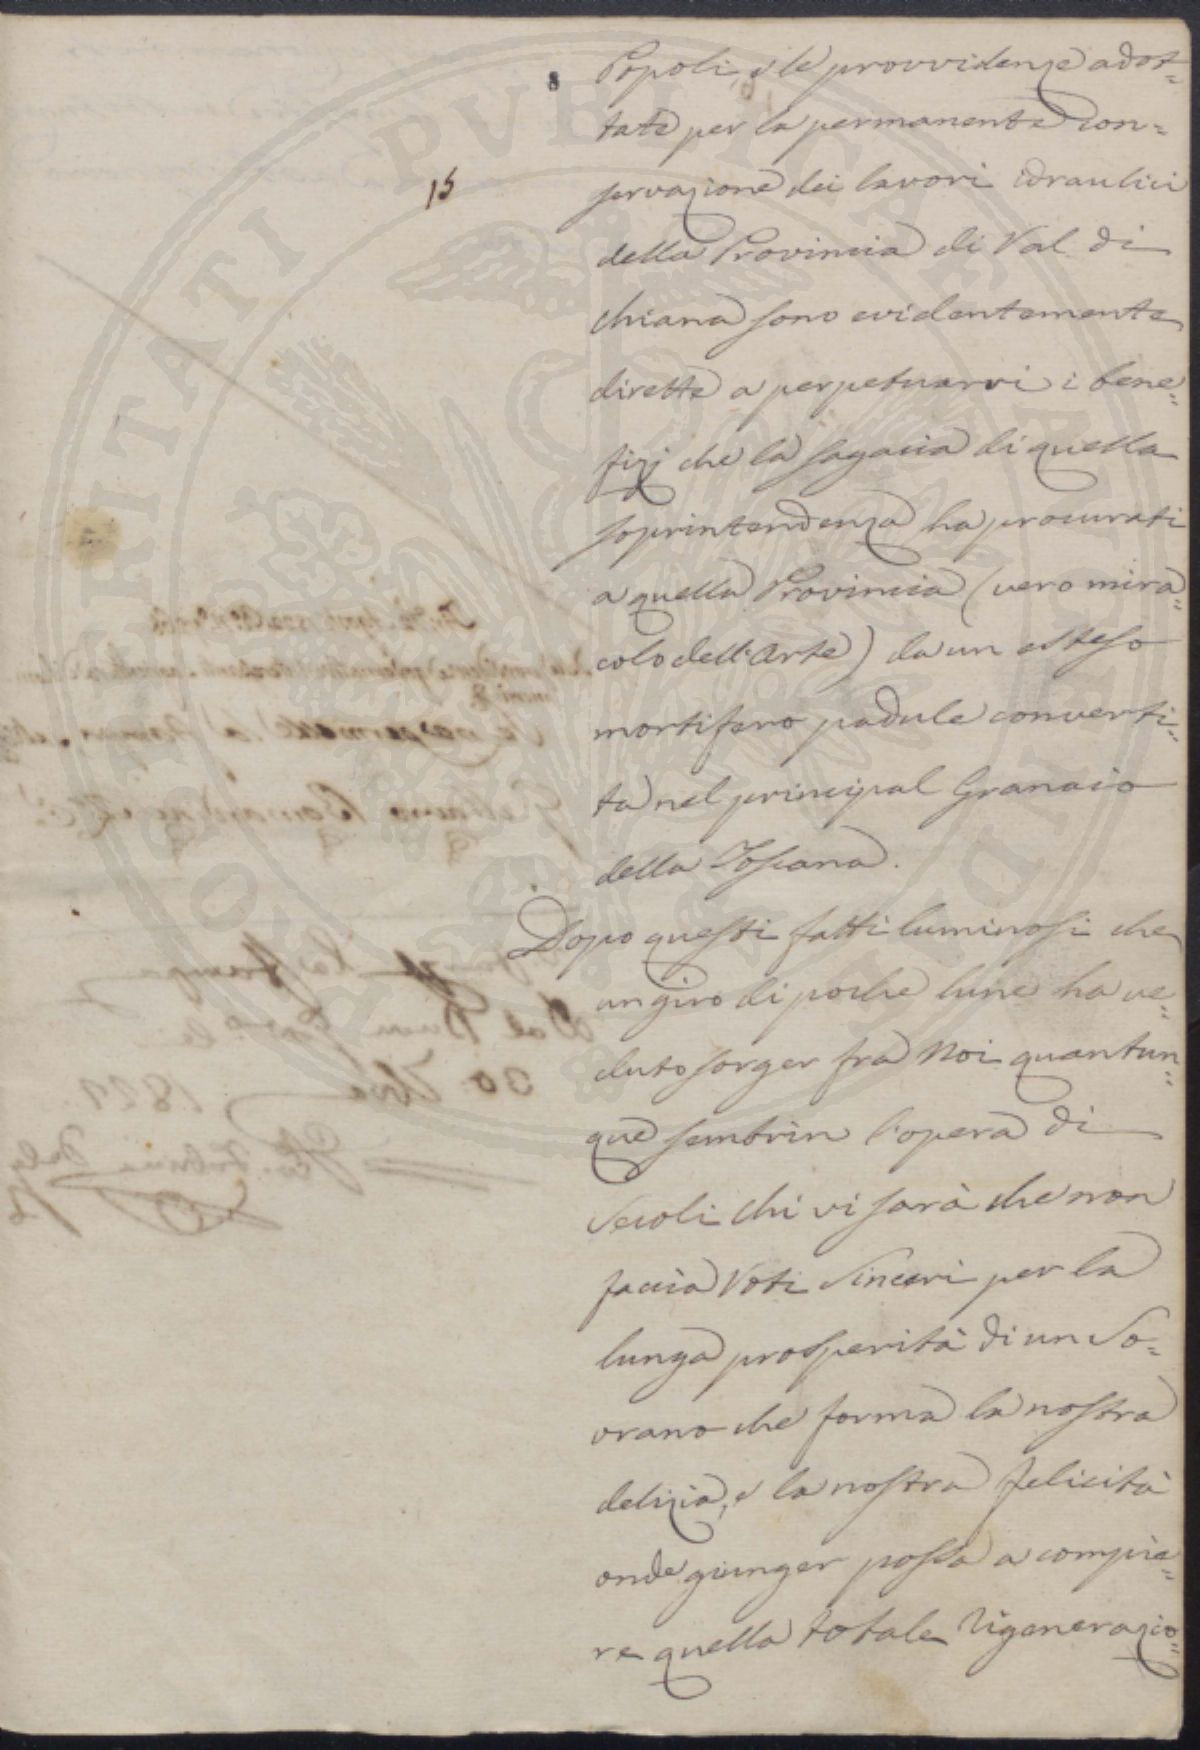 8
15
Popoli, e le provvidenze adot=
tate per la permanente con=
servazione dei lavori idraulici
della Provincia di Val di
chiana sono evidentemente
dirette a perpetuarvi i bene=
fizj che la sagacia di quella
soprintendenza ha procurati
a quella Provincia (vero mira=
colo dell'Arte) da un esteso
mortifero padule converti=
ta nel principal Granaio
della Toscana.
Dopo questi fatti luminosi che
un giro di poche lune ha ve=
duto sorger fra Noi quantun=
que sembrin l'opera di
Secoli chi vi sarà che non
faccia Voti Sinceri per la
lunga prosperità di un So=
vrano che forma la nostra
delizia, e la nostra felicità
onde giunger possa a compie=
re quella totale rigenerazio=